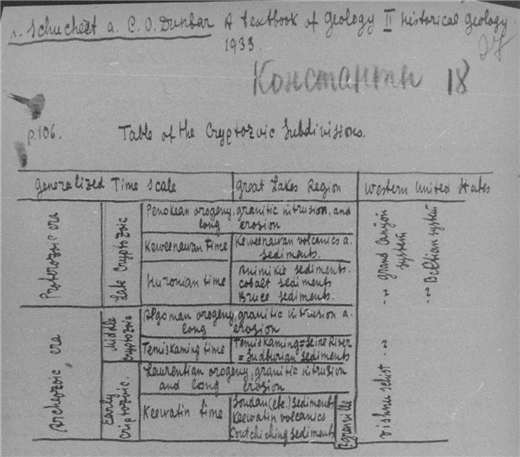 Schuchert a. C. O. Dunbar A textbook of Geology II historical geology.
1933.
Константин 18
p.106. Table of the Cryptozoic Subdivissons.
Generalized Time Scale Great Lakes Region Western United States
Proterozoic era
Late Cryptozoic
Penokean orogeny, granitic intrusion, and
long erosion
Keweenawan time
Keweenawan volcanics a.
sediments.
Huronian time
Animikie sediments.
Cobalt sediments
Bruce sediments.
Grand Canyon
system
Beltian system
Archeozoic era
Middle
Cryptozoic
Algoman orogeny, granitic intrusion a.
long erosion
Temiskaming time
Temiskaming = Seine River
= Sudburian sediments
Early
Criptozoic.
Laurentian orogeny, granitic intrusion
and long erosion
Keewatin time
Soudan (etc.) sediments
Keewatin volcanics
Coutchiching sediments
Grenville
Vishnu schist